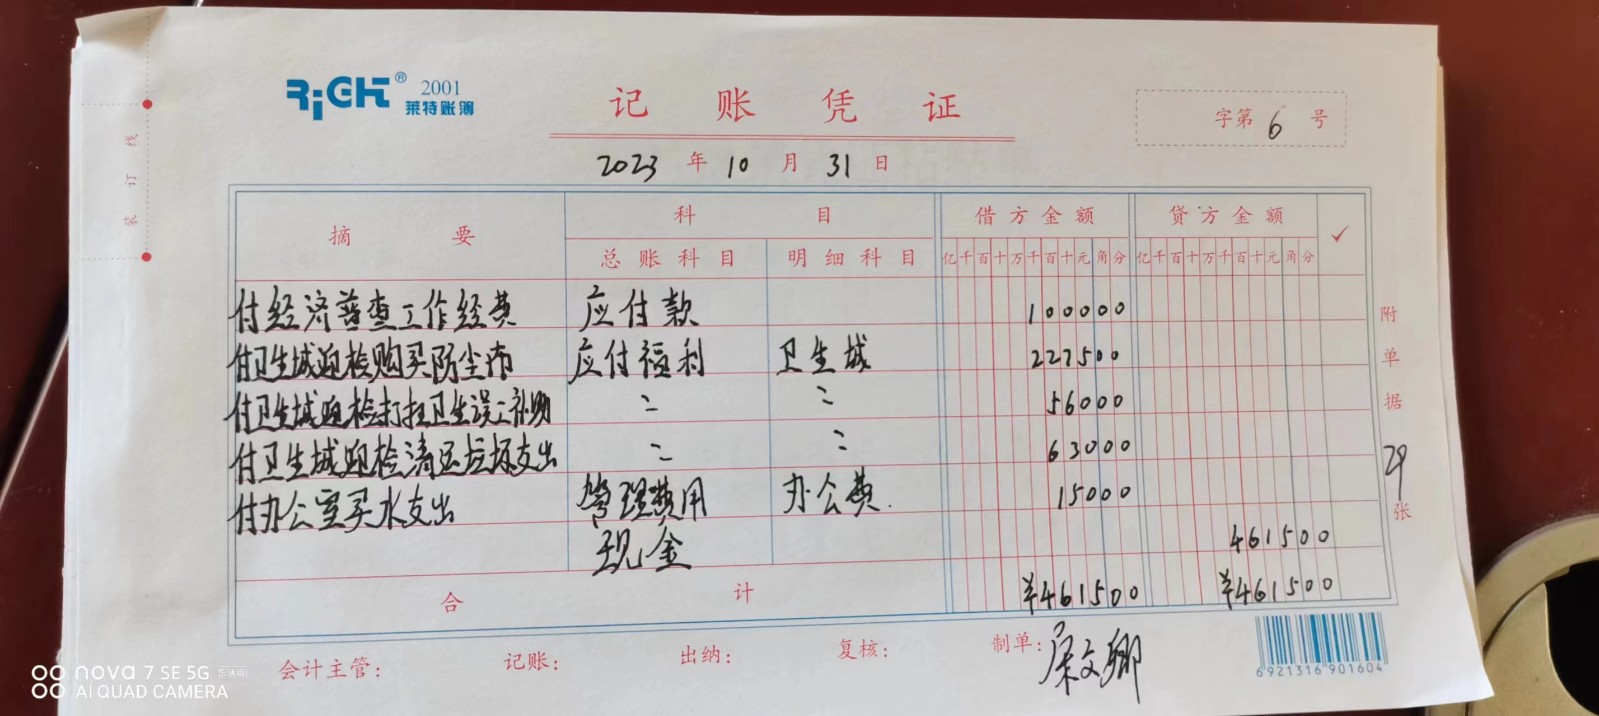 RiGHT® 2001
莱特账簿
记账凭证
字第 6 号
2023 年 10 月 31 日
装订线
摘要 科目 借方金额 贷方金额 ✓
总账科目 明细科目 亿千百十万千百十元角分 亿千百十万千百十元角分
付经济普查工作经费 应付款 100000
付卫生城迎检购买防尘布 应付福利 卫生城 227500
付卫生城迎检打扫卫生误工补助 〃 〃 56000
付卫生城迎检清运垃圾支出 〃 〃 63000
付办公室买水支出 管理费用 办公费. 15000
现金 461500
合计 ¥461500 ¥461500
附单据 29 张
会计主管: 记账: 出纳: 复核: 制单:
6921316901604
nova 7 SE 5G
AI QUAD CAMERA